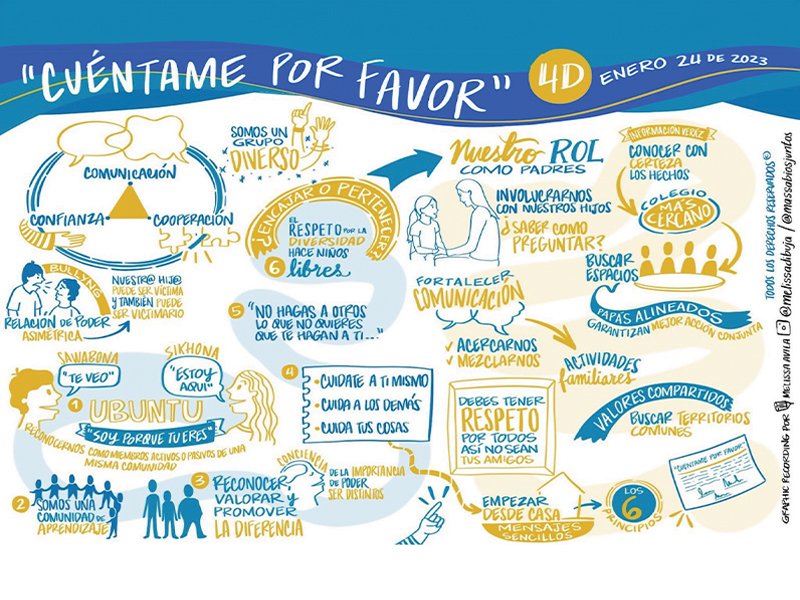 "CUÉNTAME POR FAVOR"
4D
ENERO 24 DE 2023
COMUNICACIÓN
CONFIANZA
COOPERACIÓN
SOMOS UN
GRUPO
DIVERSO
BULLYING
RELACIÓN DE PODER
ASIMÉTRICA
NUESTR@ HIJ@
PUEDE SER VÍCTIMA
Y TAMBIÉN PUEDE
SER VICTIMARIO
¿ENCAJAR O PERTENECER?
EL
RESPETO POR LA
DIVERSIDAD
HACE NIÑOS
6 libres
5 "NO HAGAS A OTROS
LO QUE NO QUIERES
QUE TE HAGAN A TI..."
SAWABONA
"TE VEO"
SIKHONA
"ESTOY
AQUÍ"
1 UBUNTU
"SOY PORQUE TU ERES"
RECONOCERNOS COMO MIEMBROS ACTIVOS O PASIVOS DE UNA
MISMA COMUNIDAD
4
• CUIDATE A TI MISMO
• CUIDA A LOS DEMÁS
• CUIDA TUS COSAS
2 SOMOS UNA
COMUNIDAD DE
APRENDIZAJE
3 RECONOCER,
VALORAR Y
PROMOVER
LA DIFERENCIA
CONCIENCIA
DE LA IMPORTANCIA
DE PODER
SER DISTINTOS
Nuestro ROL
COMO PADRES
INVOLUCRARNOS
CON NUESTROS HIJOS
¿SABER COMO
PREGUNTAR?
FORTALECER
COMUNICACIÓN
✓ ACERCARNOS
✓ MEZCLARNOS
ACTIVIDADES
familiares
DEBES TENER
RESPETO
POR TODOS
ASÍ NO SEAN
TUS AMIGOS
EMPEZAR
DESDE CASA
MENSAJES
SENCILLOS
INFORMACIÓN VERAZ
CONOCER CON
CERTEZA
LOS HECHOS
COLEGIO
MÁS
CERCANO
BUSCAR
ESPACIOS
PAPÁS ALINEADOS
GARANTIZAN MEJOR ACCIÓN CONJUNTA
VALORES COMPARTIDOS
BUSCAR TERRITORIOS
COMUNES
LOS
6
PRINCIPIOS
"CUÉNTAME POR FAVOR"
GRAPHIC RECORDING POR MELISSA AVILA @melissadibuja / @massabiosjuntos
TODOS LOS DERECHOS RESERVADOS®